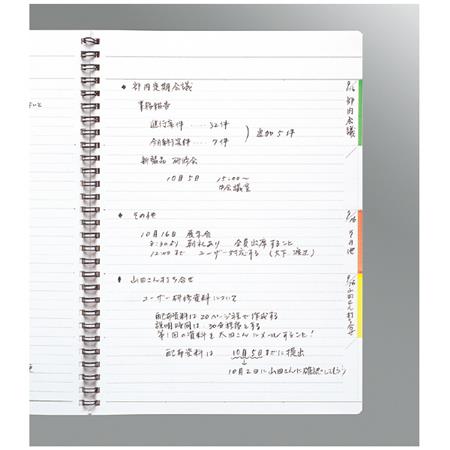 ◆ 部内定期会議
業務報告
進行案件 ‥‥ 32件
今月終了案件 ‥‥ 7件
追加 5件
新製品 研修会
10月5日 15:00〜
中会議室
◆ その他
10月16日 展示会
8:30より 朝礼あり 全員出席すること
12:00まで ユーザー対応する (木下、渡辺)
◆ 山田さん打ち合せ
ユーザー研修資料について
配布資料は20ページ程で作成する
説明時間は30分程度とする
第1回の資料を太田さんにメールすること!
配布資料は 10月5日までに提出
10月2日に山田さんに確認してもらう
部内会議
その他
山田さん打ち合せ